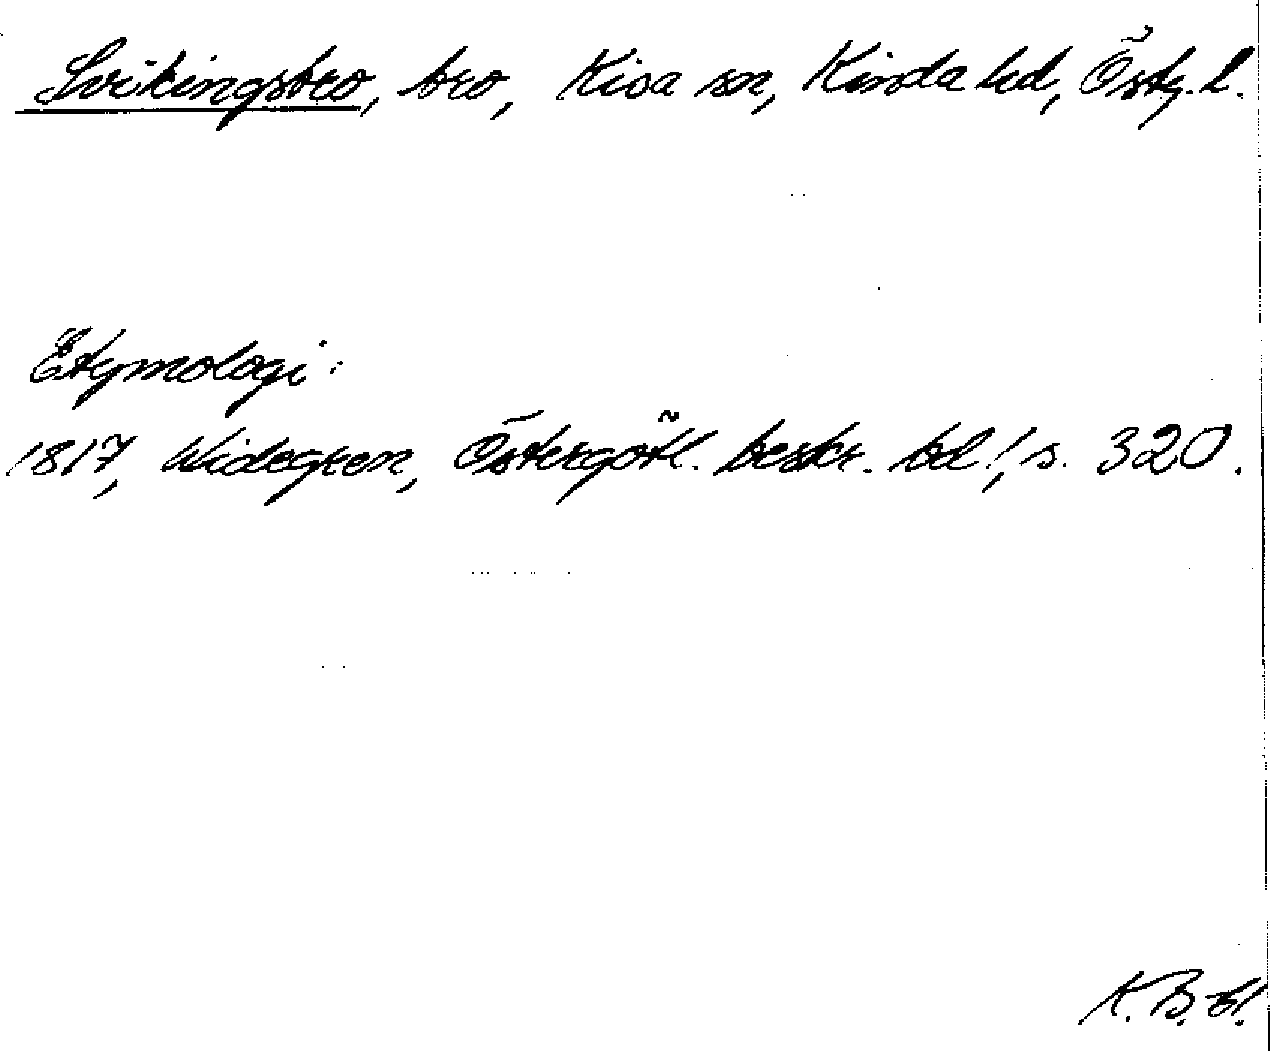 Svikingsbro, bro, Kisa sn, Kinda hd, Östg. l.
Etymologi:
1817, Widegren, Östergötl. beskr. bd 1, s. 320.
K. B.